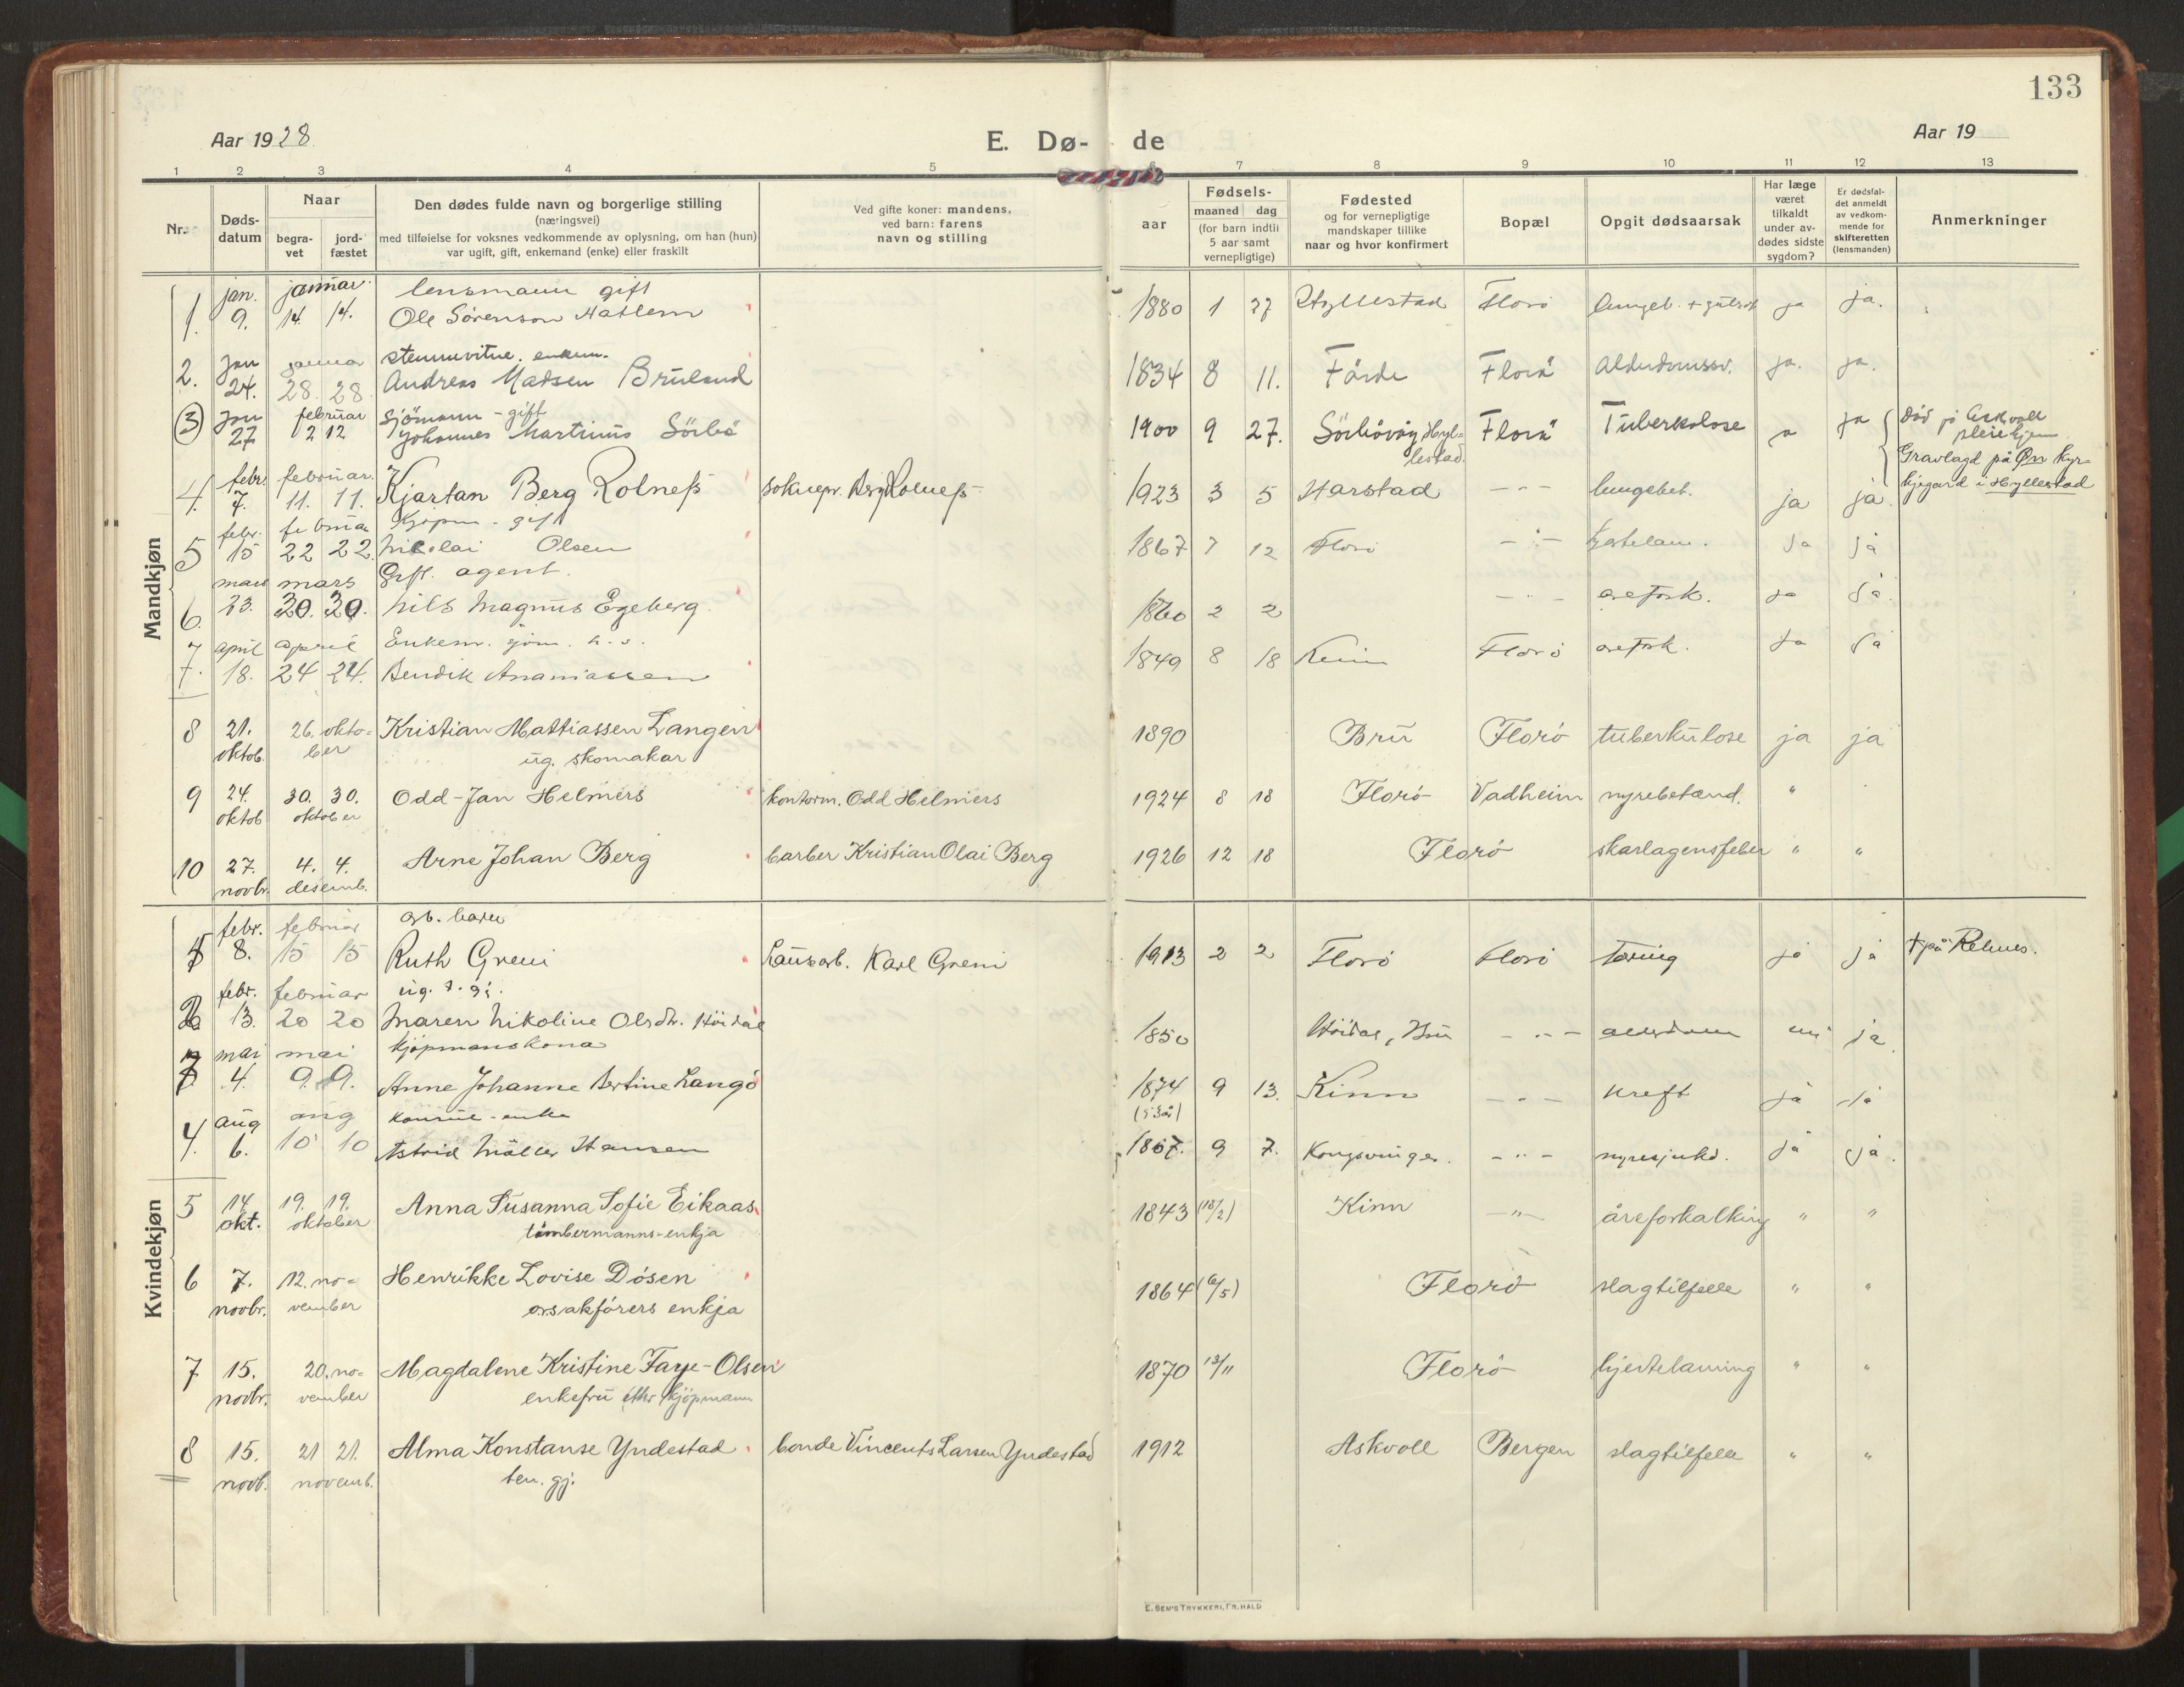 133
Aar 1928
E. Dø-
de
Aar 19
1 2 3 4 5 6 7 8 9 10 11 12 13
Nr.
Døds-
datum
Naar
begra-
vet
jord-
fæstet
Den dødes fulde navn og borgerlige stilling
(næringsvei)
med tilføielse for voksnes vedkommende av oplysning, om han (hun)
var ugift, gift, enkemand (enke) eller fraskilt
Ved gifte koner: mandens,
ved barn: farens
navn og stilling
aar
Fødsels-
maaned dag
(for barn indtil
5 aar samt
vernepligtige)
Fødested
og for vernepligtige
mandskaper tillike
naar og hvor konfirmert
Bopæl
Opgit dødsaarsak
Har læge
været
tilkaldt
under av-
dødes sidste
sygdom?
Er dødsfal-
det anmeldt
av vedkom-
mende for
skifteretten
(lensmanden)
Anmerkninger
Mandkjøn
jan. januar lensmann gift
1. 9. 14. 14. Ole Sørenson Hatlem 1880 1 27 Hyllestad Florö ja ja.
Jan enkem.
2. 24. 28. 28 Andreas Madsen Bruland 1834 8 11. Förde Florö ja. ja.
Jan februar Sjömann - gift
(3) 27 12 Johannes Martinus Sörbö 1900 9 27. Sörbövåg Hyl-
lestad. Florö Tuberkolose ja Död på Askvoll
pleiehjem
Gravlagd på Øn kyr-
kjegard i Hyllestad
febr. februar.
4. 7. 11. 11. Kjartan Berg Rolneß soknepr. Berg Rolneß 1923 3 5 Harstad - " - ja ja.
febr. februar Kjøpm - gift
5 15 22 22. Nikolai Olsen 1867 7 12 Florö - " - hjertelam. ja ja
mars mars Gift. agent.
6. 23. 30. 30. Nils Magnus Egeberg 1860 2 2 - " - ja ja.
april april Enkem.
7. 18. 24 24. Bendik Ananiassen 1849 8 18 Florö ja ja
8 21.
oktob. 26. okto-
ber Kristian Mattiassen Langen
ug. skomakar 1890 Bru Florö tuberkulose ja ja
9 24.
oktob 30. 30.
oktober Odd-Jan Helmers kontorm. Odd Helmers 1924 8 18 Florö Vadheim nyrebetænd. "
10 27.
novbr. 4. 4.
desemb. Arne Johan Berg barber Kristian Olai Berg 1926 12 18 Florö skarlagensfeber " "
Kvindekjøn
febr. februar arb. barn
8. 15 15 Ruth Greni Karl Greni 1913 2 2 Florö Florö tæring ja ja † på Reknes.
febr. februar
2 13. 20 20 Maren Nikoline Olsdtr. Höidal 1850 Höidal, Bru - " - ja
mai mai kjøpmanskona
3 4. 9. 9. Anne Johanne Bertine Langö 1874 9 13. Kinn - " - kreft ja ja
aug aug
4. 6. 10 10 Astrid Möller Hansen 1867. 9 7. Kongsvinger. - " - nyresjukd. ja ja.
5 14.
okt. 19. 19.
oktober Anna Susanna Sofie Eikaas
timbermanns-enkja 1843 (18/2) Kinn - " - åreforkalking " "
6 7.
novbr. 12. no-
vember Henrikke Lovise Dösen
orsakförers enkja 1864 (6/5) Florö slagtilfelle " "
7 15.
novbr. 20. no-
vember Magdalene Kristine Faye-Olsen
enkefru etter kjöpmann 1870 13/11 Florö hjertelaming " "
8 15.
novb. 21 21.
novemb. Alma Konstanse Yndestad
ten. gj. bonde Vincents Larsen Yndestad 1912 Askvoll Bergen slagtilfelle " "
E. SEM'S TRYKKERI, FR.HALD